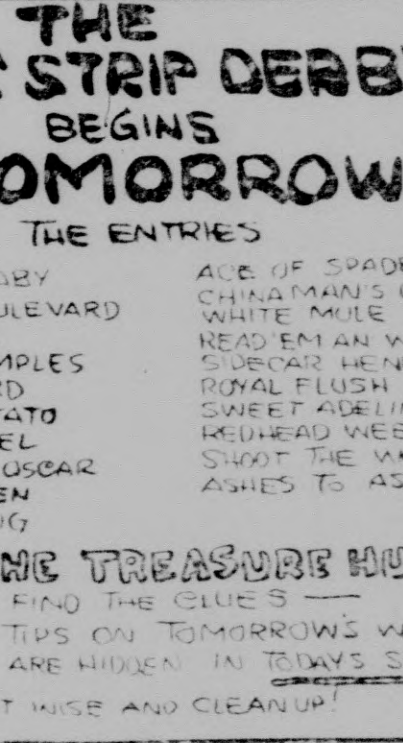 THE
STRIP DERB
BEGINS
OMORROW
THE ENTRIES
ABY
ULEVARD
MPLES
RD
TATO
EL
OSCAR
EN
ACE OF SPADE
CHINAMAN'S
WHITE MULE
READ 'EM AN W
SIDECAR HEN
ROYAL FLUSH
SWEET ADELI
REDHEAD WEE
SHOOT THE W
ASHES TO AS
HE TREASURE HU
FIND THE CLUES —
TIPS ON TOMORROW'S W
ARE HIDDEN IN TODAYS S
T WISE AND CLEAN UP!